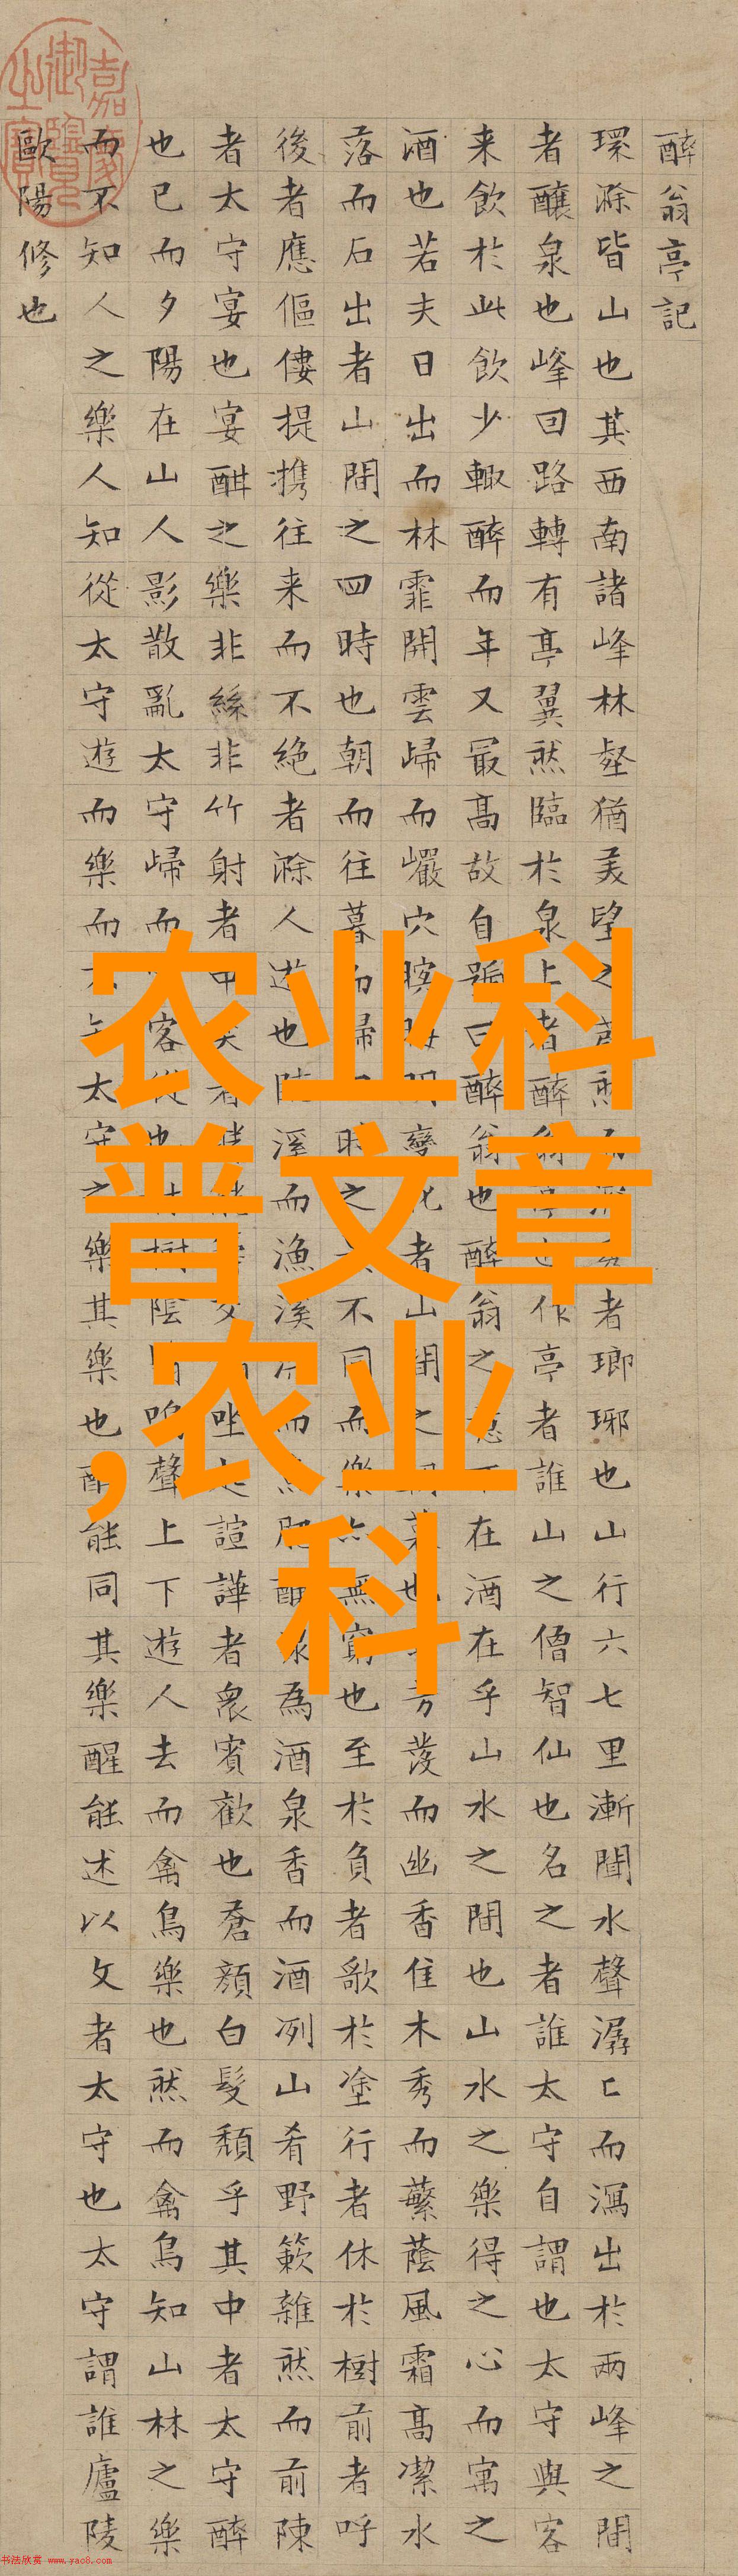 醉翁亭記
環滁皆山也其西南諸峰林壑猶美望之者瑯琊也山行六七里漸聞水聲潺〻而瀉出於兩峰之間
者釀泉也峰回路轉有亭翼然臨於泉上者醉翁作亭者誰山之僧智仙也名之者誰太守自謂也太守與客
来飲於此飲少輒醉而年又最高故自號曰醉翁也醉翁之意在酒在乎山水之間也山水之樂得之心而寓之
酒也若夫日出而林霏開雲歸而巖穴暝變化者山間之暮也芳發而幽香佳木秀而蘩蔭風霜高潔水
落而石出者山間之四時也朝而往暮而歸時之不同而樂亦無窮也至於負者歌於塗行者休於樹前者呼
後者應傴僂提攜往来而不絶者滁人遊也溪而漁溪而肥釀泉為酒泉香而酒冽山肴野蔌雜然而前陳
者太守宴也宴酣之樂非絲非竹射者中者坐起諠譁者衆賓歡也蒼顏白髮頹乎其中者太守醉
也已而夕陽在山人影散亂太守歸而客從也樹陰鳴聲上下遊人去而禽鳥樂也然而禽鳥知山林之樂
而不知人之樂人知從太守遊而樂而不知太守之樂其樂也醉能同其樂醒能述以文者太守也太守謂誰廬陵
歐陽修也
嘉慶御覽之寶
农业科
普文章
,农业
科
书法欣赏 www.yac8.com